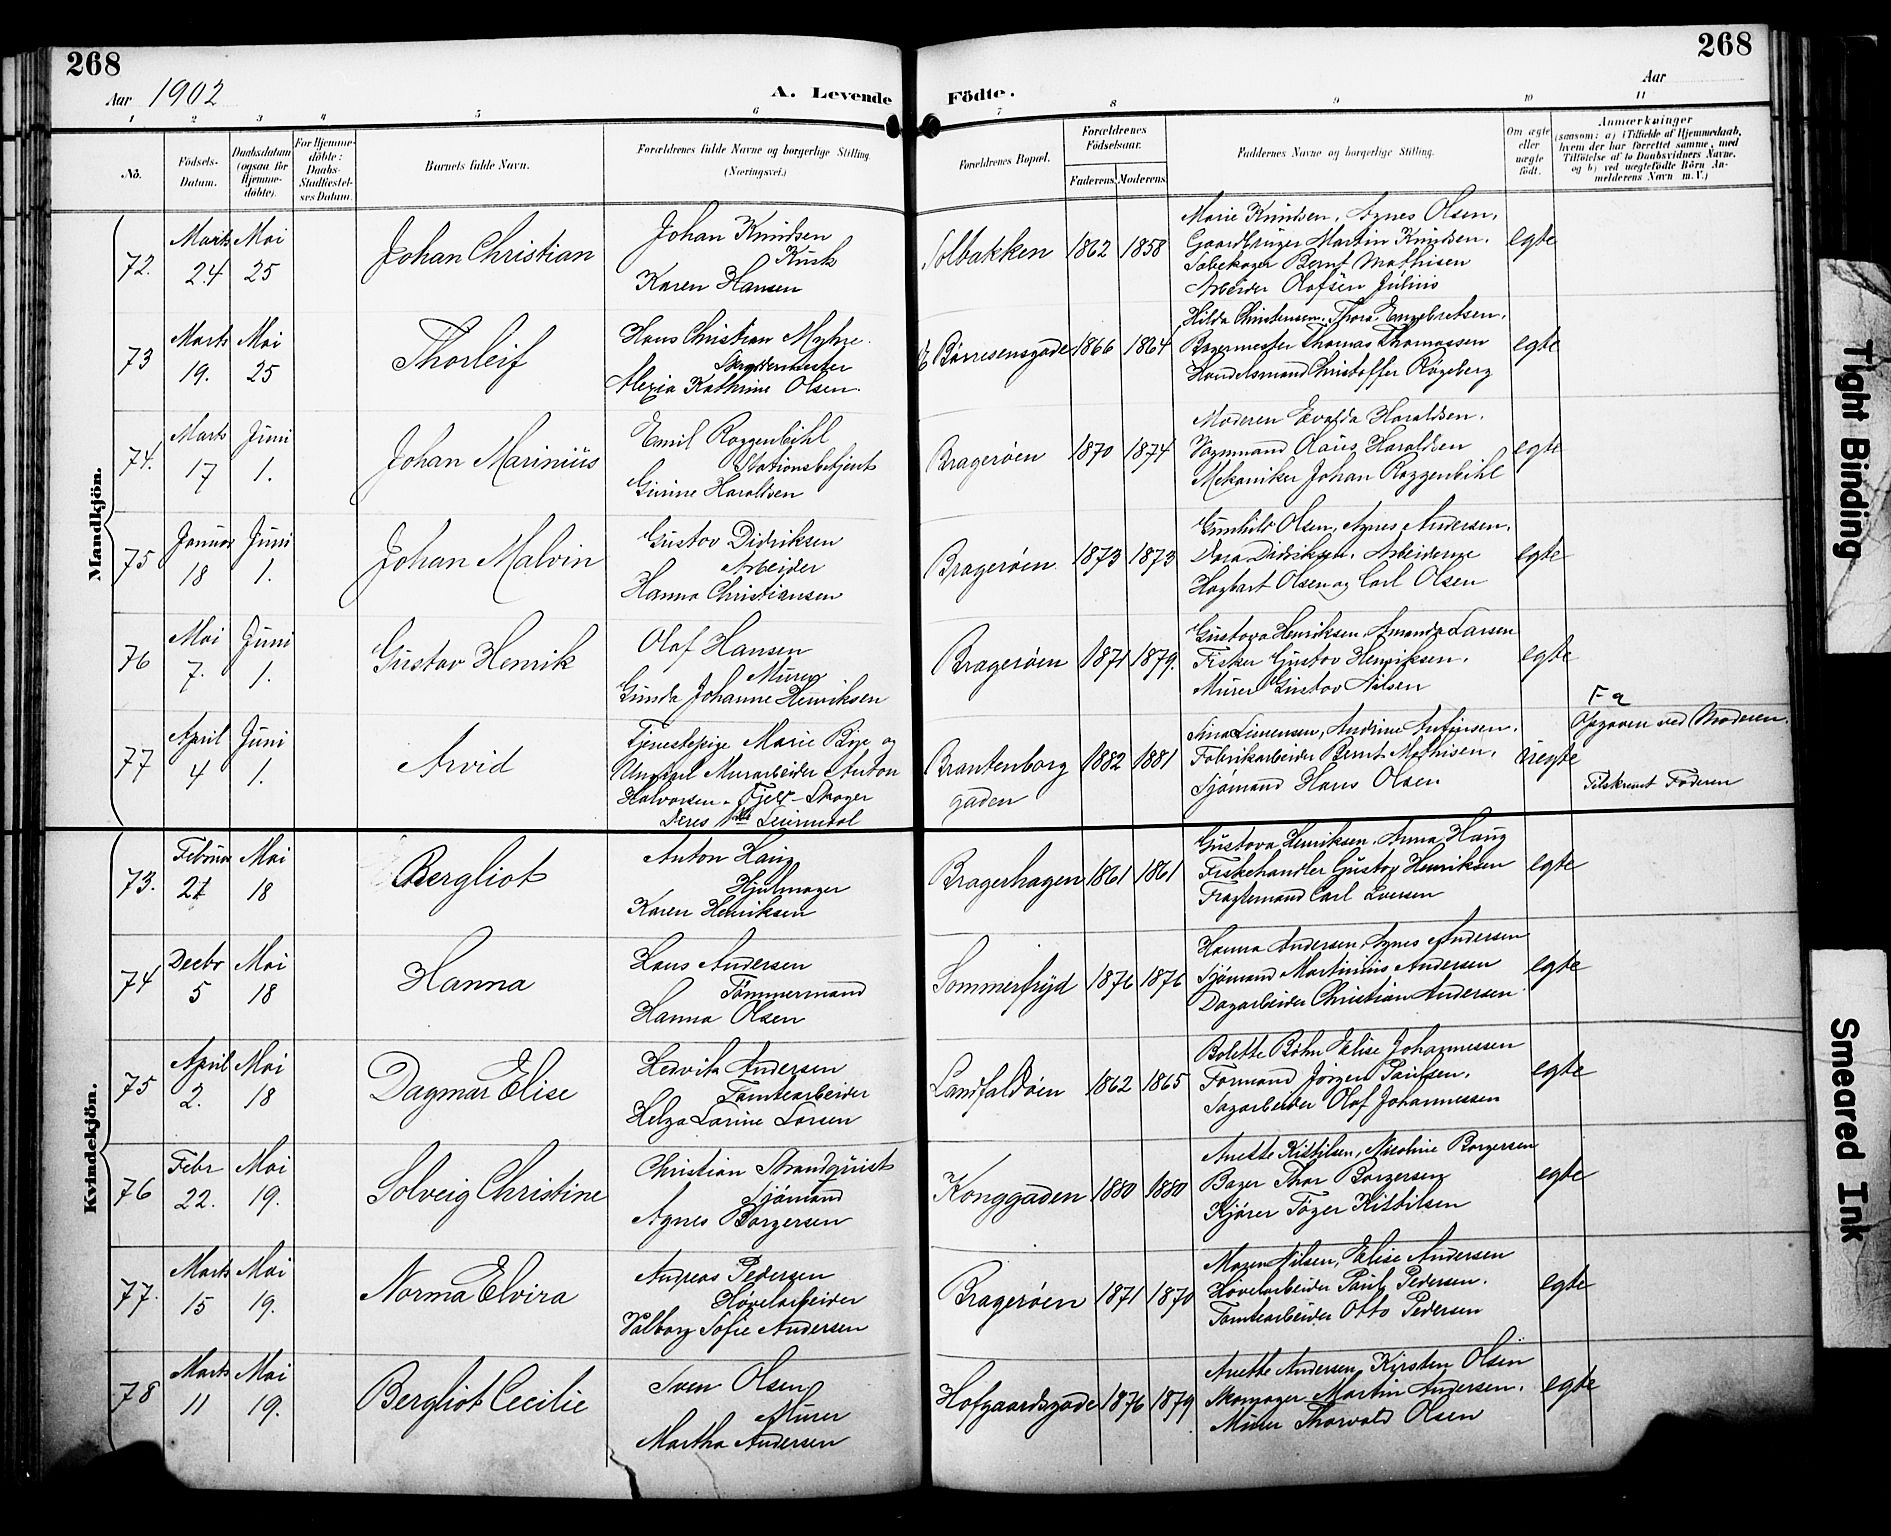 268
268
Aar 1902
A. Levende Födte.
Aar
1 2 3 4 5 6 7 8 9 10 11
No.
Födsels-Datum.
Daabsdatum (ogsaa for Hjemme-döbte).
For Hjemme-döbte: Daabs-Stadfæstel-ses Datum.
Barnets fulde Navn.
Forældrenes fulde Navne og borgerlige Stilling (Næringsvei.)
Forældrenes Bopæl.
Forældrenes Födselsaar.
Faderens
Moderens
Faddernes Navne og borgerlige Stilling.
Om ægte eller uægte födt.
Anmærkninger
(saasom: a) i Tilfælde af Hjemmedaab,
hvem der har forrettet samme, med
Tilföielse af to Daabsvidners Navne,
og b) ved uegtefödte Börn An-
melderens Navn m. V.)
Mandkjön.
72. Marts 24 Mai 25 Johan Christian
Johan Knudsen
Kusk
Karen Hansen
Solbakken 1862 1858
Marie Knudsen, Agnes Olsen,
Gaardbruger Martin Knudsen,
Bernt Mathisen
Arbeider Olofsen Julius
egte
73 Marts 19. Mai 25 Thorleif
Hans Christian Myhre
Alexia Kathrine Olsen.
Börresensgade 1866 1864
Hilda Christensen, Thora Engebretsen,
Bagermester Thomas Thomassen
Handelsmand Christoffer Rögeberg
egte
74. Marts 17 Juni 1. Johan Marinius
Emil Roggenbihl
Stationsbetjent
Gurine Haraldsen
Bragerøen 1870 1874
Moderen Evalda Haraldsen.
Vognmand Olaus Haraldsen
Mekaniker Johan Roggenbihl
egte
75 Januar 18 Juni 1. Johan Malvin
Gustav Didriksen
Arbeider
Hanna Christiansen
Bragerøen. 1873 1873
Gunhild Olsen, Agnes Andersen,
Dora Didriksen. Arbeiderne
Hagbart Olsen og Carl Olsen
egte
76 Mai 7. Juni 1. Gustav Henrik
Olaf Hansen
Murer
Gunda Johanne Henriksen
Bragerøen 1871 1879.
Gustava Henriksen, Amanda Larsen
Fisker Gustav Henriksen.
Murer Gustav Nilsen
egte
77 April 4 Juni 1. Arvid
Tjenestepige Marie Bye og
Ungkarl Murarbeider Anton
Halvorsen. Fjeld-Skoger
Deres 1ste Leiermaal
Brantenborg
gaden
1882 1881
Lina Simensen, Andrine Antonsen.
Fabrikarbeider Bernt Mathisen.
Sjømand Hans Olsen
uegte
Opgaven ved Moderen.
Tilskrevet Faderen
Kvindekjön.
73. Februar 21 Mai 18 Bergliot
Anton Haug
Hjulmager
Karen Henriksen
Bragerhagen 1861 1861
Gustava Henriksen. Anna Haug
Fiskehandler Gustav Henriksen
Fragtemand Carl Iversen
egte
74 Decbr 5 Mai 18 Hanna
Hans Andersen
Tømmermand
Hanna Olsen
Sommerfryd 1876 1876
Hanna Andersen, Agnes Andersen
Sjømand Martinius Andersen
Dagarbeider Christian Andersen
egte
75 April 2. Mai 18 Dagmar Elise
Hedvik Andersen
Tomtearbeider
Helga Larine Larsen
Landfaldøen 1862 1865
Bolette Bøhn Elise Johannessen
Formand Jörgen Paulsen.
Sagarbeider Olaf Johannessen
egte
76 Febr 22. Mai 19. Solveig Christine
Christian Strandquist
Sjømand
Agnes Borgersen
Konggaden 1880 1880
Anette Kittilsen, Nicoline Borgersen
Bager Thor Borgersen
Kjører Tøger Kittilsen
egte
77. Marts 15 Mai 19. Norma Elvira
Andreas Pedersen
Høvelarbeider
Valborg Sofie Andersen
Bragerøen 1871 1870
Maren Nilsen, Elise Andersen
Høvelarbeider Paul Pedersen.
Tomtearbeider Otto Pedersen
egte
78 Marts 11 Mai 19. Bergliot Cecilie
Sven Olsen
Murer
Martha Andersen
Hofgaardsgade 1876 1879
Anette Andersen, Kirsten Olsen
Skomager Martin Andersen.
Murer Thorvald Olsen
egte
Tight Binding
Smeared Ink